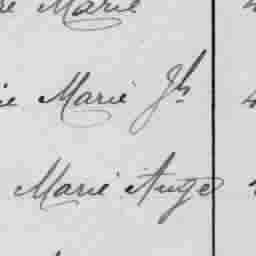 re Marie
ie Marie Jh
Marie Ange